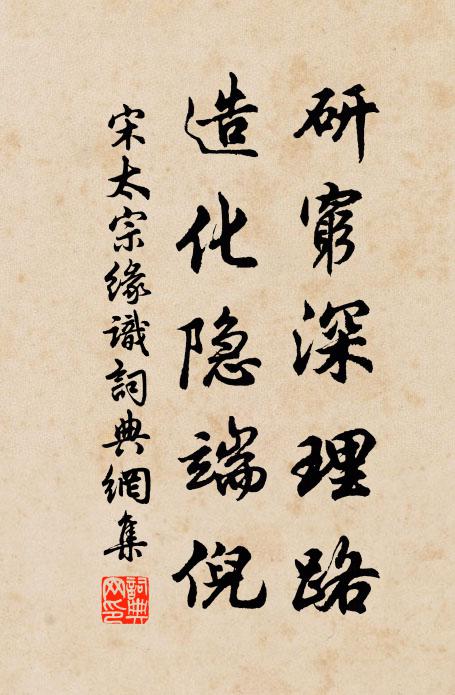 研窮深理路
造化隐端倪
宋太宗緣識詞典網集
詞典网印